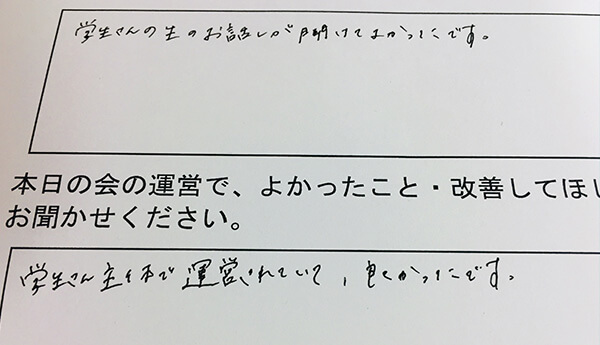 学生さんの生のお話しが聞けてよかったです。
本日の会の運営で、よかったこと・改善してほし
お聞かせください。
学生さん主体で運営されていて、良かったです。